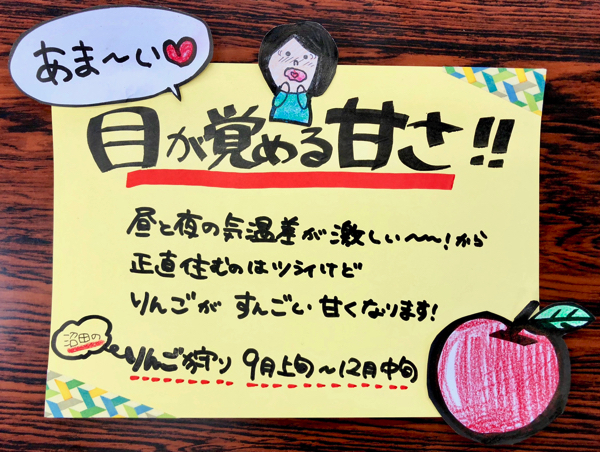 あま〜い
目が覚める甘さ!!
昼と夜の気温差が激しい〜〜!から
正直住むのはツライけど
りんごが すんごい 甘くなります!
沼田の
りんご狩り 9月上旬〜12月中旬